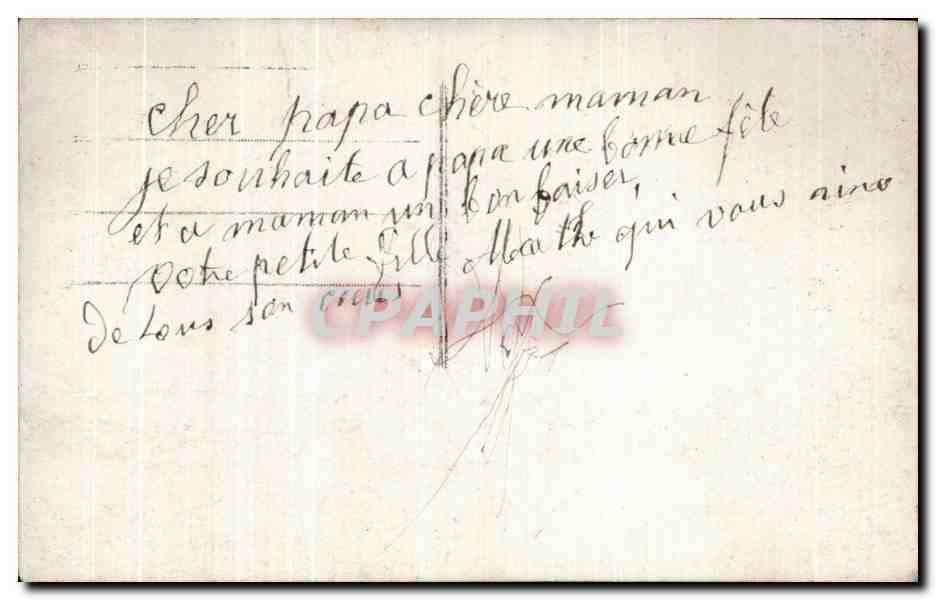 Cher papa chère maman
je souhaite a papa une bonne fête
et a maman un bon baiser,
votre petite fille Marthe qui vous aime
de tous son
CPAPHIL